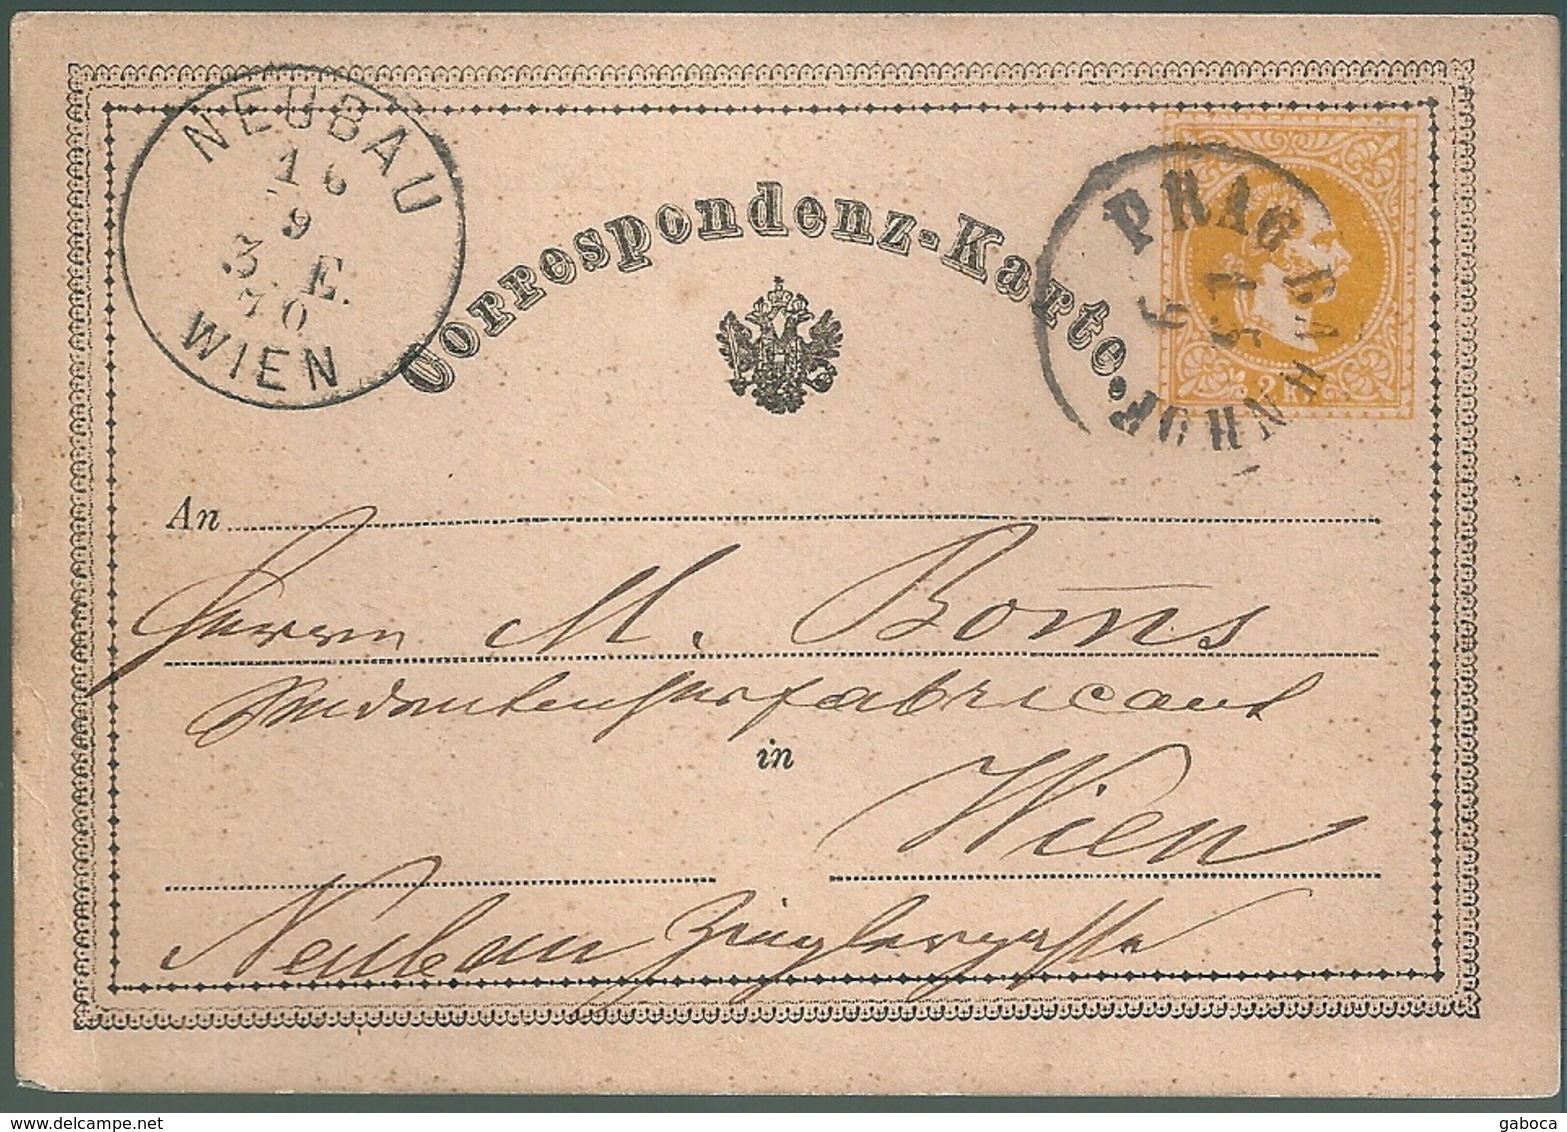 NEUBAU
16
9
3. E.
70
WIEN
Correspondenz-Karte.
PRAG BAHNHOF
2 Kr
An
Herrn M. Boms
in
Wien
Neubau Zieglergasse
gaboca